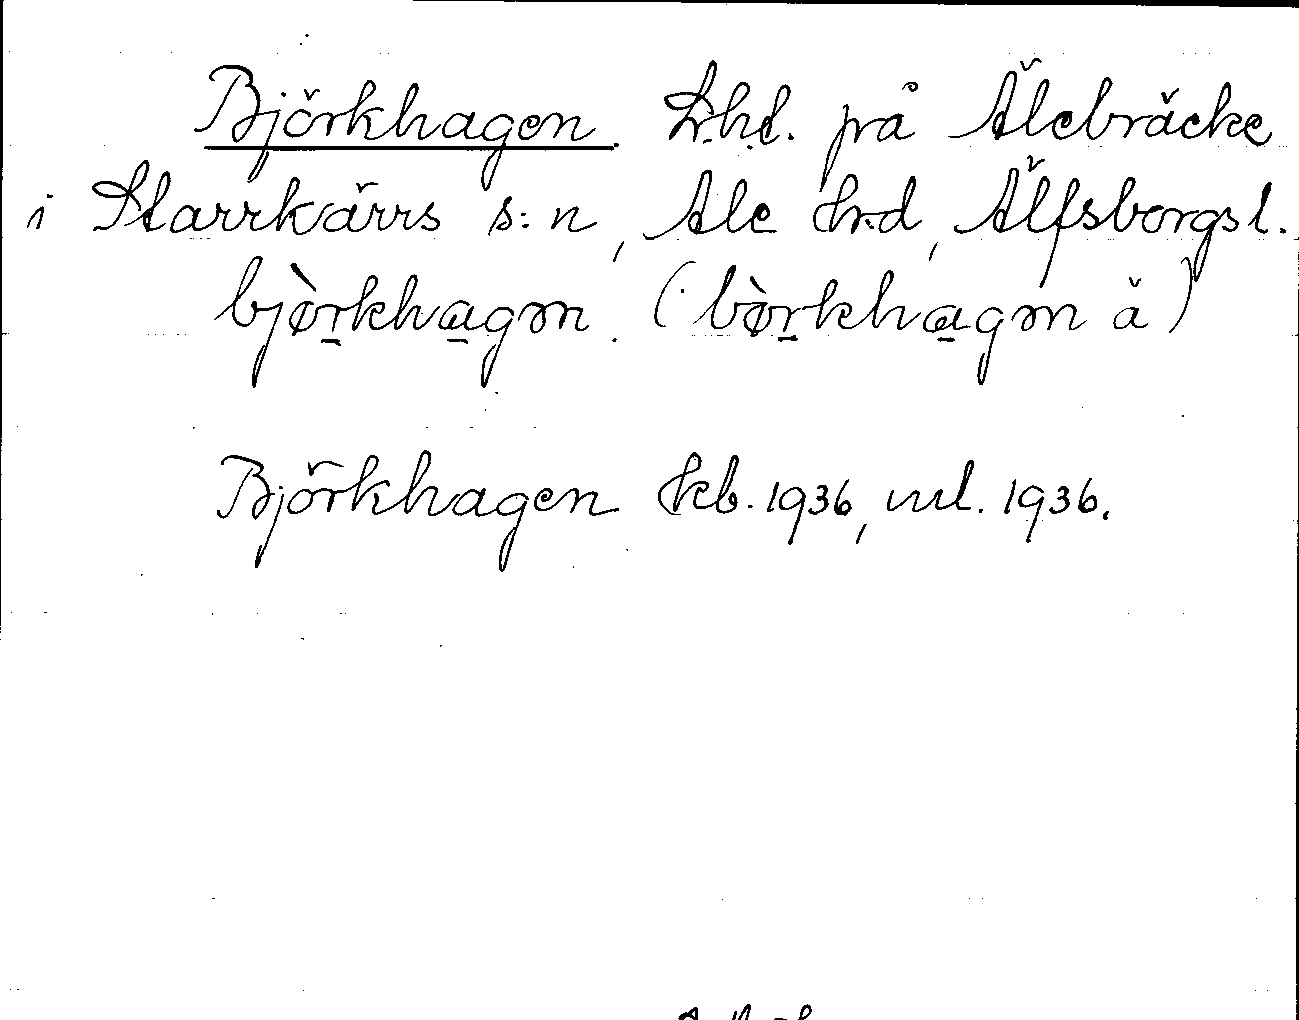 Björkhagen. Lhd. på Älebräcke
i Starrkärrs s:n, Ale hrd, Älfsborgs l.
bjò̈rkhagen. (bò̈rkhagen ä)
Björkhagen kb. 1936, ml. 1936.